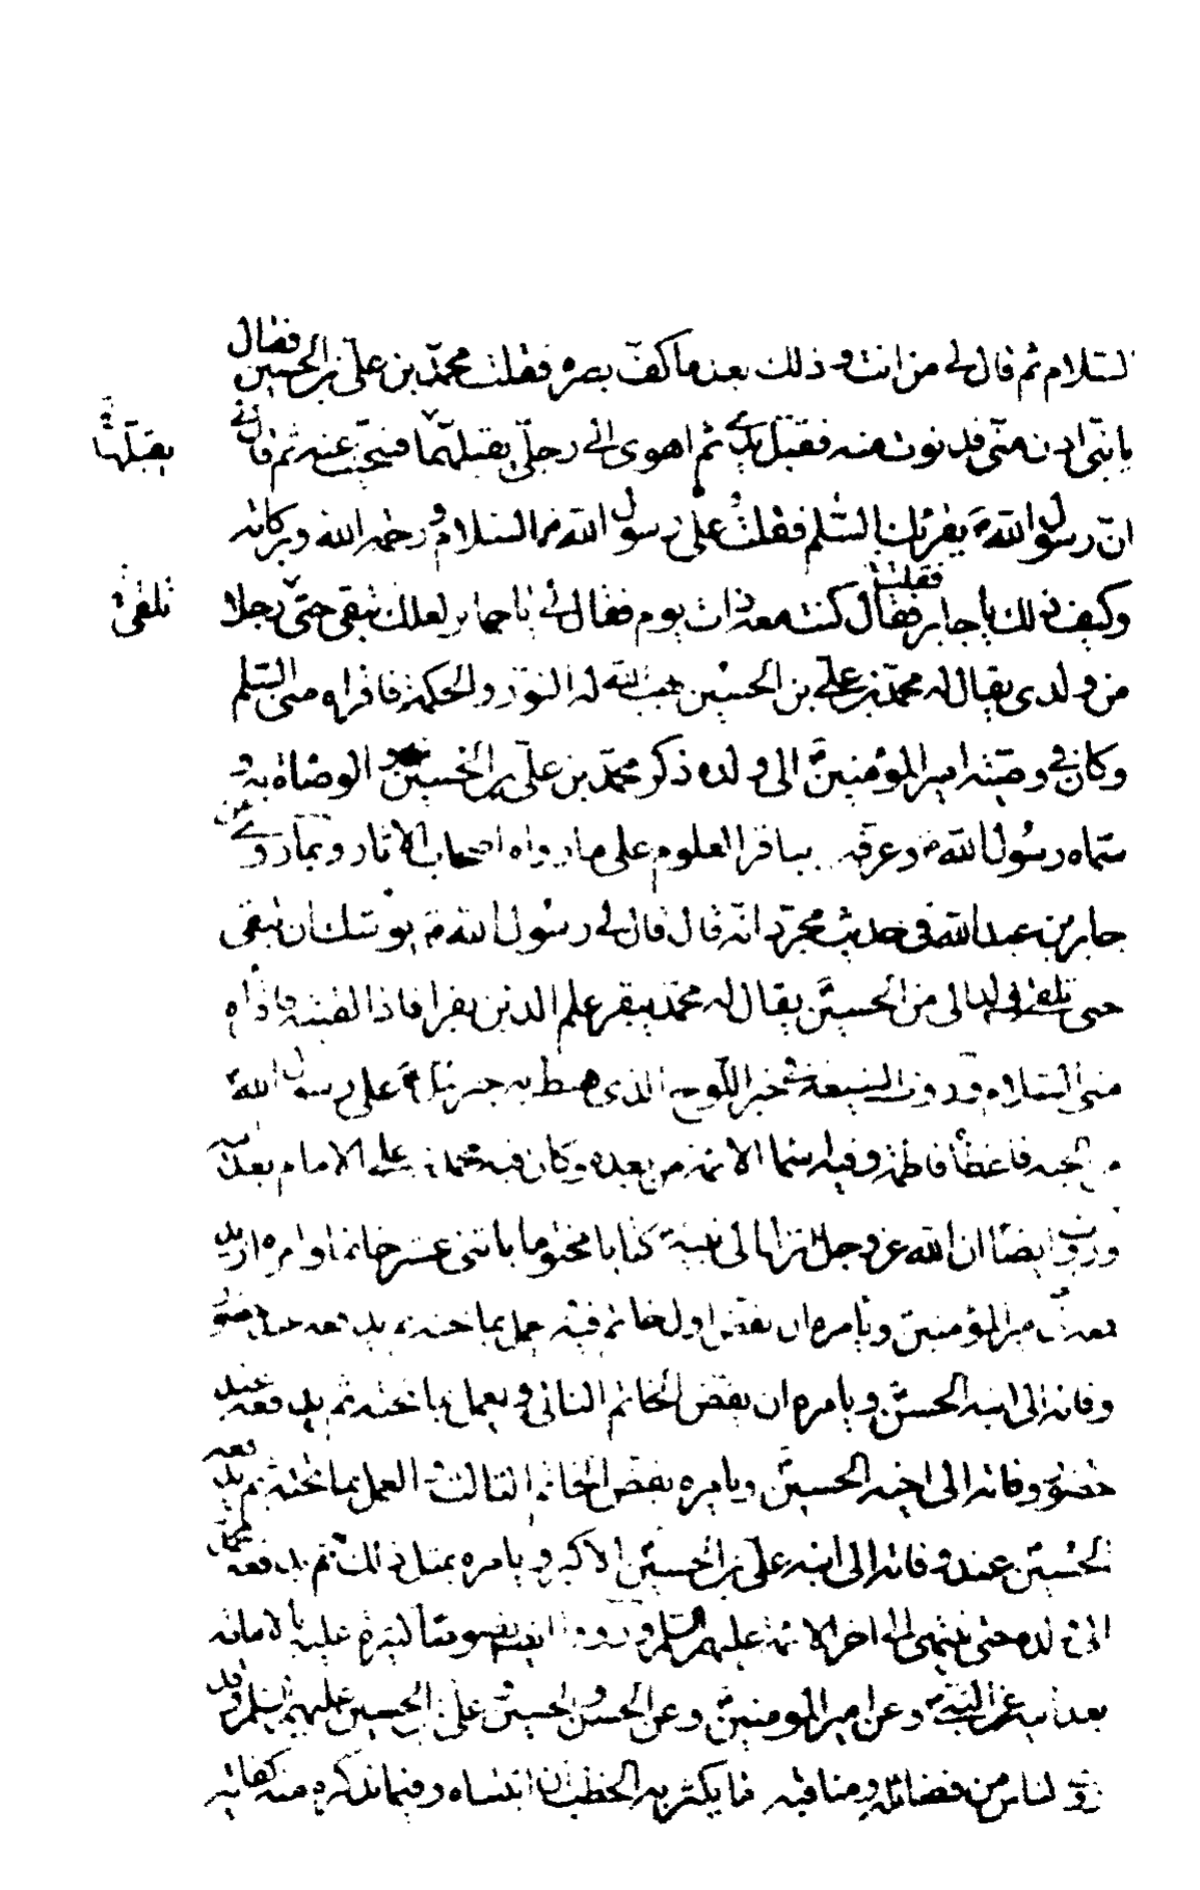 السلام ثم قال لي من انت وذلك بعد ما كف بصره فقلت محمد بن علي بن الحسين فقال
يا بني ادن مني فدنوت منه فقبل يدي ثم اهوى الى رجلي يقبلهما فتنحيت عنه ثم قال لي
يقبلها
ان رسول الله ص يقرئك السلم فقلت وعلى رسول الله ص السلام ورحمة الله وبركاته
وكيف ذلك يا جابر فقال كنت معه ذات يوم فقال لي يا جابر لعلك تبقى حتى رجلا
تلقى
من ولدي يقال له محمد بن علي بن الحسين يهب الله له النور والحكمة فاقراه مني السلم
وكان في وصية امير المؤمنين الى ولده ذكر محمد بن علي بن الحسين والوصاة به و
سماه رسول الله ص وعرفه بباقر العلوم على ما رواه اصحاب الاثار وبما روي عن
جابر بن عبد الله في حديث مجرد انه قال قال لي رسول الله ص يوشك ان تبقى
حتى تلقى ولدا لي من الحسين يقال له محمد يبقر علم الدين بقرا فاذا لقيته فاقراه
مني السلام وروت الشيعة في خبر اللوح الذي هبط به جبرئيل ع على رسول الله
من الجنة فاعطاه فاطمة وفيه اسماء الائمة من بعده وكان فيه محمد بن علي الامام بعد ابيه
وروت ايضا ان الله عز وجل انزل الى نبيه كتابا مختوما باثنى عشر خاتما وامره ان يدفعه
الى امير المؤمنين ويامره ان يفض اول خاتم فيه فيعمل بما تحته ثم يدفعه عند حضور
وفاته الى ابنه الحسن ويامره ان يفض الخاتم الثاني ويعمل بما تحته ثم يدفعه عند
حضور وفاته الى اخيه الحسين ويامره بفض الخاتم الثالث و العمل بما تحته ثم يدفعه
الحسين عند وفاته الى ابنه علي بن الحسين الاكبر ويامره بمثل ذلك ثم يدفعه محمد
الى ولده حتى ينتهي الى اخر الائمة عليهم السلم ورووا ايضا نصوصا كثيرة عليه بالامامة
بعد ابيه عن النبي ص وعن امير المؤمنين وعن الحسن والحسين وعلي بن الحسين عليهم السلم وقد
روى الناس من فضائله ومناقبه ما يكثر به الخطب ان اثبتناه وفيما نذكره منه كفاية